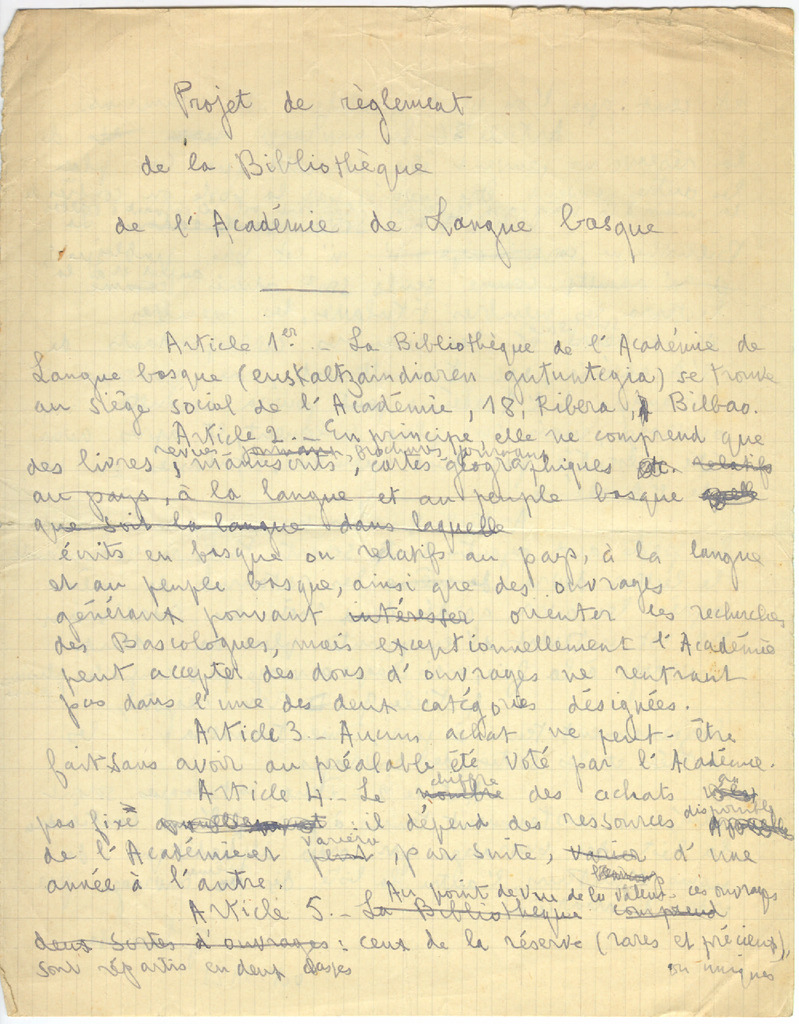 Projet de règlement
de la Bibliothèque
de l'Académie de Langue basque
Article 1er. - La Bibliothèque de l'Académie de
Langue basque (euskaltzaindiaren gutuntegia) se trouve
au siège social de l'Académie, 18, Ribera, à Bilbao.
Article 2. - En principe, elle ne comprend que
revues, brochures, journaux
des livres, manuscrits, cartes géographiques etc. relatifs
au pays, à la langue et au peuple basque
que soit la langue dans laquelle
écrits en basque ou relatifs au pays, à la langue
et au peuple basque, ainsi que des ouvrages
généraux pouvant intéresser orienter les recherches
des Bascologues, mais exceptionnellement l'Académie
peut accepter des dons d'ouvrages ne rentrant
pas dans l'une des deux catégories désignées.
Article 3. - Aucun achat ne peut-être
fait sans avoir au préalable été voté par l'Académie.
chiffre
Article 4. - Le nombre des achats
disponibles
pas fixé annuellement : il dépend des ressources
varier
de l'Académie et peut, par suite, varier d'une
année à l'autre.
Au point de vue de la valeur ces ouvrages
Article 5. - La Bibliothèque comprend
deux sortes d'ouvrages : ceux de la réserve (rares et précieux),
sont répartis en deux classes ou uniques